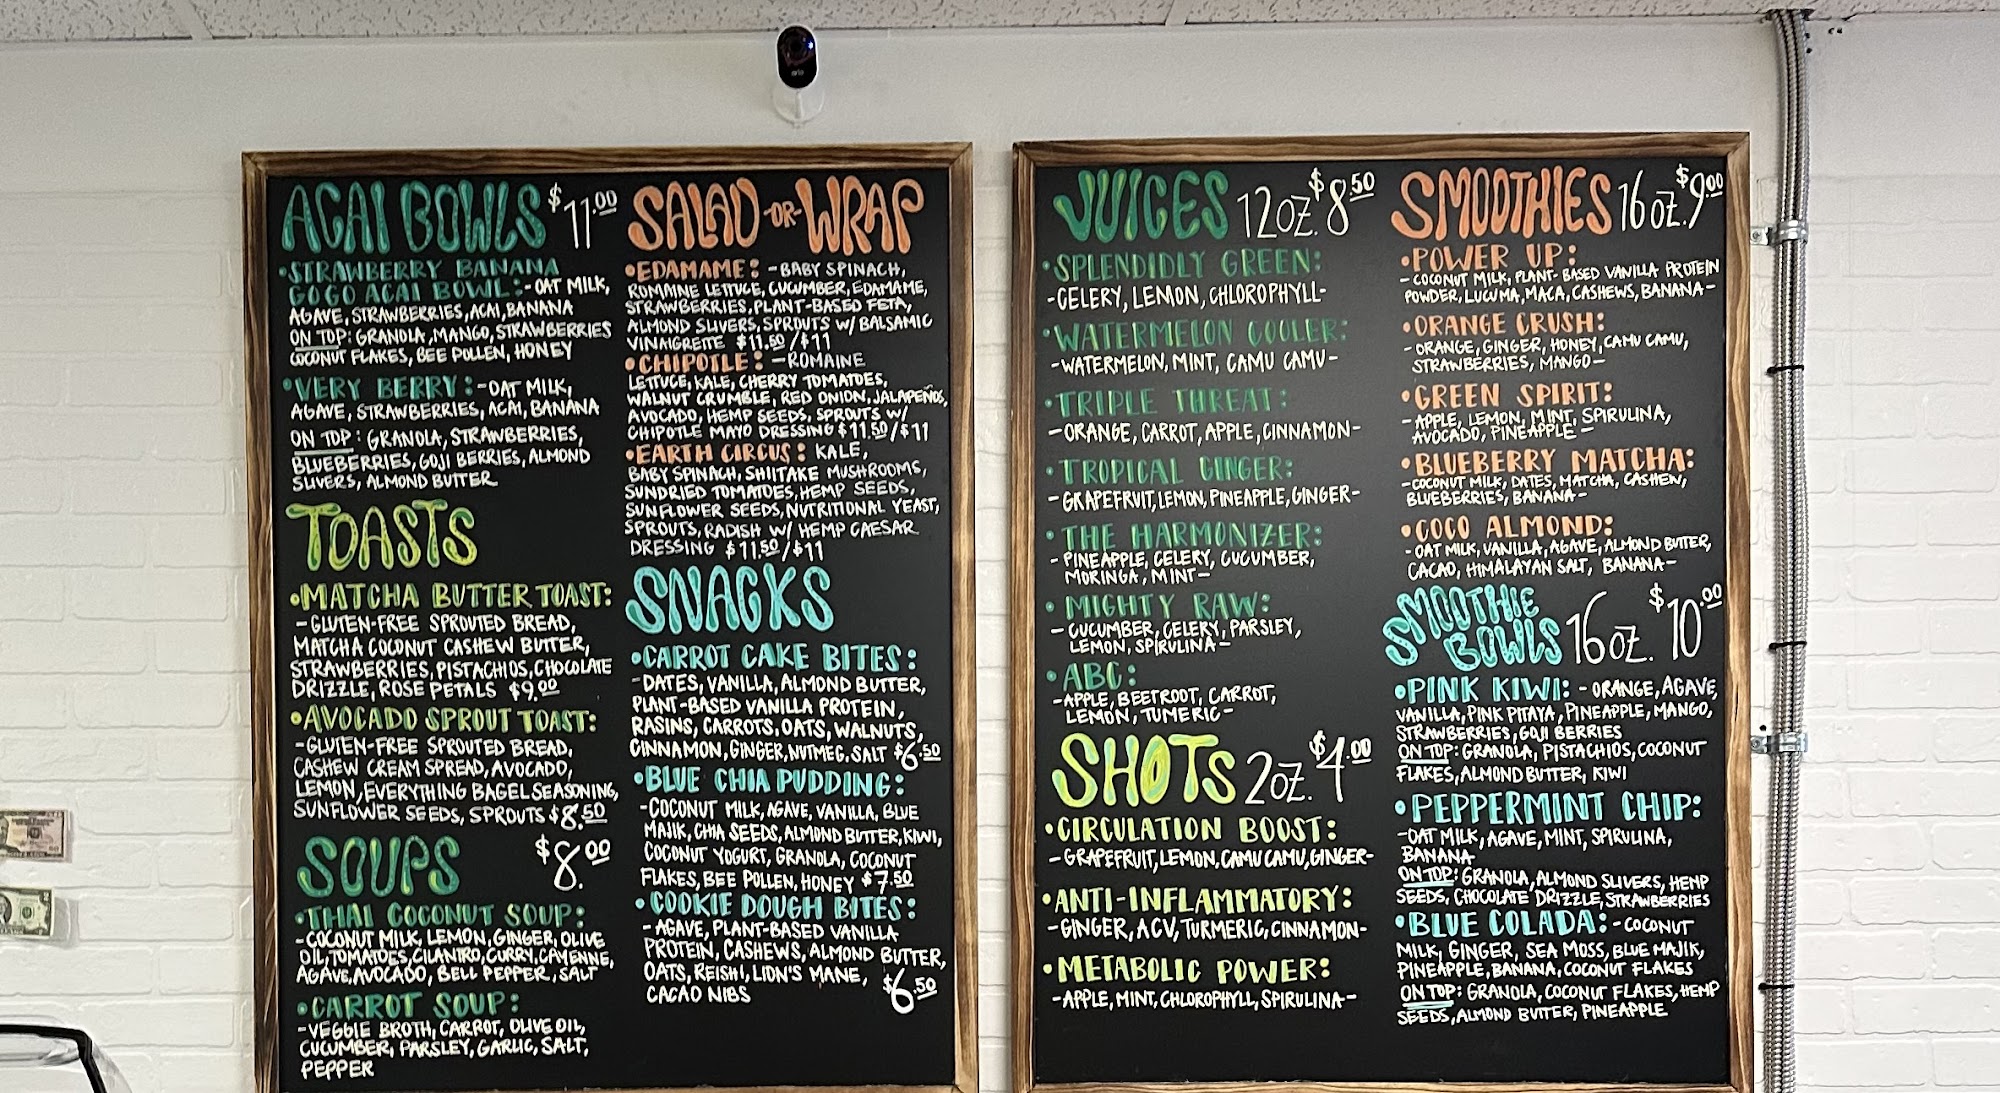 ACAI BOWLS $11.00
•STRAWBERRY BANANA
GOGO ACAI BOWL:-OAT MILK,
AGAVE, STRAWBERRIES, ACAI, BANANA
ON TOP: GRANOLA, MANGO, STRAWBERRIES
COCONUT FLAKES, BEE POLLEN, HONEY
•VERY BERRY:-OAT MILK,
AGAVE, STRAWBERRIES, ACAI, BANANA
ON TOP: GRANOLA, STRAWBERRIES,
BLUEBERRIES, GOJI BERRIES, ALMOND
SLIVERS, ALMOND BUTTER
TOASTS
•MATCHA BUTTER TOAST:
-GLUTEN-FREE SPROUTED BREAD,
MATCHA COCONUT CASHEW BUTTER,
STRAWBERRIES, PISTACHIOS, CHOCOLATE
DRIZZLE, ROSE PETALS $9.00
•AVOCADO SPROUT TOAST:
-GLUTEN-FREE SPROUTED BREAD,
CASHEW CREAM SPREAD, AVOCADO,
LEMON, EVERYTHING BAGEL SEASONING,
SUNFLOWER SEEDS, SPROUTS $8.50
SOUPS $8.00
•THAI COCONUT SOUP:
-COCONUT MILK, LEMON, GINGER, OLIVE
OIL, TOMATOES, CILANTRO, CURRY, CAYENNE,
AGAVE, AVOCADO, BELL PEPPER, SALT
•CARROT SOUP:
-VEGGIE BROTH, CARROT, OLIVE OIL,
CUCUMBER, PARSLEY, GARLIC, SALT,
PEPPER
SALAD -OR- WRAP
•EDAMAME: -BABY SPINACH,
ROMAINE LETTUCE, CUCUMBER, EDAMAME,
STRAWBERRIES, PLANT-BASED FETA,
ALMOND SLIVERS, SPROUTS W/ BALSAMIC
VINAIGRETTE $11.50/$11
•CHIPOTLE: -ROMAINE
LETTUCE, KALE, CHERRY TOMATOES,
WALNUT CRUMBLE, RED ONION, JALAPEÑOS,
AVOCADO, HEMP SEEDS, SPROUTS W/
CHIPOTLE MAYO DRESSING $11.50/$11
•EARTH CIRCUS: KALE,
BABY SPINACH, SHIITAKE MUSHROOMS,
SUNDRIED TOMATOES, HEMP SEEDS,
SUNFLOWER SEEDS, NUTRITIONAL YEAST,
SPROUTS, RADISH W/ HEMP CAESAR
DRESSING $11.50/$11
SNACKS
•CARROT CAKE BITES:
-DATES, VANILLA, ALMOND BUTTER,
PLANT-BASED VANILLA PROTEIN,
RASINS, CARROTS, OATS, WALNUTS,
CINNAMON, GINGER, NUTMEG, SALT $6.50
•BLUE CHIA PUDDING:
-COCONUT MILK, AGAVE, VANILLA, BLUE
MAJIK, CHIA SEEDS, ALMOND BUTTER, KIWI,
COCONUT YOGURT, GRANOLA, COCONUT
FLAKES, BEE POLLEN, HONEY $7.50
•COOKIE DOUGH BITES:
-AGAVE, PLANT-BASED VANILLA
PROTEIN, CASHEWS, ALMOND BUTTER,
OATS, REISHI, LION'S MANE, $6.50
CACAO NIBS
JUICES 12OZ. $8.50
•SPLENDIDLY GREEN:
-CELERY, LEMON, CHLOROPHYLL-
•WATERMELON COOLER:
-WATERMELON, MINT, CAMU CAMU-
•TRIPLE THREAT:
-ORANGE, CARROT, APPLE, CINNAMON-
•TROPICAL GINGER:
-GRAPEFRUIT, LEMON, PINEAPPLE, GINGER-
•THE HARMONIZER:
-PINEAPPLE, CELERY, CUCUMBER,
MORINGA, MINT-
•MIGHTY RAW:
-CUCUMBER, CELERY, PARSLEY,
LEMON, SPIRULINA-
•ABC:
-APPLE, BEETROOT, CARROT,
LEMON, TUMERIC-
SHOTS 2OZ. $4.00
•CIRCULATION BOOST:
-GRAPEFRUIT, LEMON, CAMU CAMU, GINGER-
•ANTI-INFLAMMATORY:
-GINGER, ACV, TURMERIC, CINNAMON-
•METABOLIC POWER:
-APPLE, MINT, CHLOROPHYLL, SPIRULINA-
SMOOTHIES 16OZ. $9.00
•POWER UP:
-COCONUT MILK, PLANT-BASED VANILLA PROTEIN
POWDER, LUCUMA, MACA, CASHEWS, BANANA-
•ORANGE CRUSH:
-ORANGE, GINGER, HONEY, CAMU CAMU,
STRAWBERRIES, MANGO-
•GREEN SPIRIT:
-APPLE, LEMON, MINT, SPIRULINA,
AVOCADO, PINEAPPLE-
•BLUEBERRY MATCHA:
-COCONUT MILK, DATES, MATCHA, CASHEW,
BLUEBERRIES, BANANA-
•COCO ALMOND:
-OAT MILK, VANILLA, AGAVE, ALMOND BUTTER,
CACAO, HIMALAYAN SALT, BANANA-
SMOOTHIE
BOWLS 16OZ. $10.00
•PINK KIWI: -ORANGE, AGAVE,
VANILLA, PINK PITAYA, PINEAPPLE, MANGO,
STRAWBERRIES, GOJI BERRIES
ON TOP: GRANOLA, PISTACHIOS, COCONUT
FLAKES, ALMOND BUTTER, KIWI
•PEPPERMINT CHIP:
-OAT MILK, AGAVE, MINT, SPIRULINA,
BANANA
ON TOP: GRANOLA, ALMOND SLIVERS, HEMP
SEEDS, CHOCOLATE DRIZZLE, STRAWBERRIES
•BLUE COLADA: -COCONUT
MILK, GINGER, SEA MOSS, BLUE MAJIK,
PINEAPPLE, BANANA, COCONUT FLAKES
ON TOP: GRANOLA, COCONUT FLAKES, HEMP
SEEDS, ALMOND BUTTER, PINEAPPLE